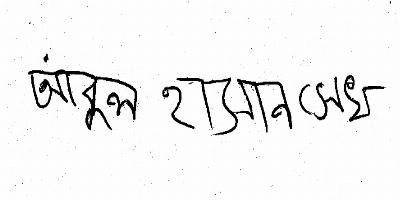 আবুল হাসান সেখ